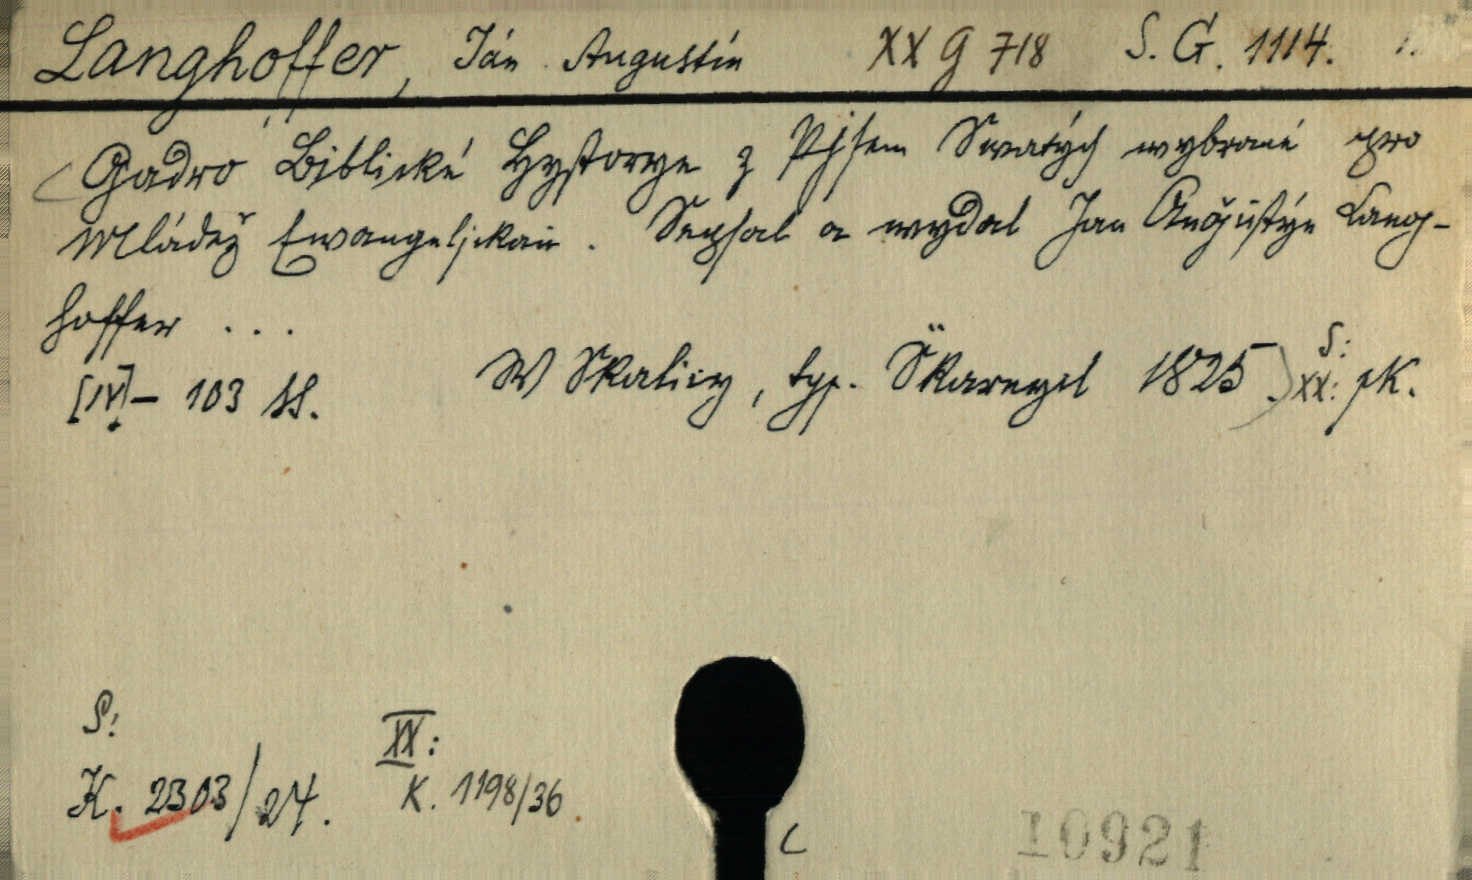 Langhoffer, Ján Augustín XX G 718 S. G. 1114.
Gadro Biblické Hystorye z Pjsem Swatých wybrané pro
Mládež Ewangeljckau. Sepsal a wydal Jan Augustýn Lang-
hoffer ...
[IV] - 103 SS. W Skalicy, typ. Škarnycl 1825. S: XX: pK.
S: XX:
K. 2303/27. K. 1198/36.
C
10921